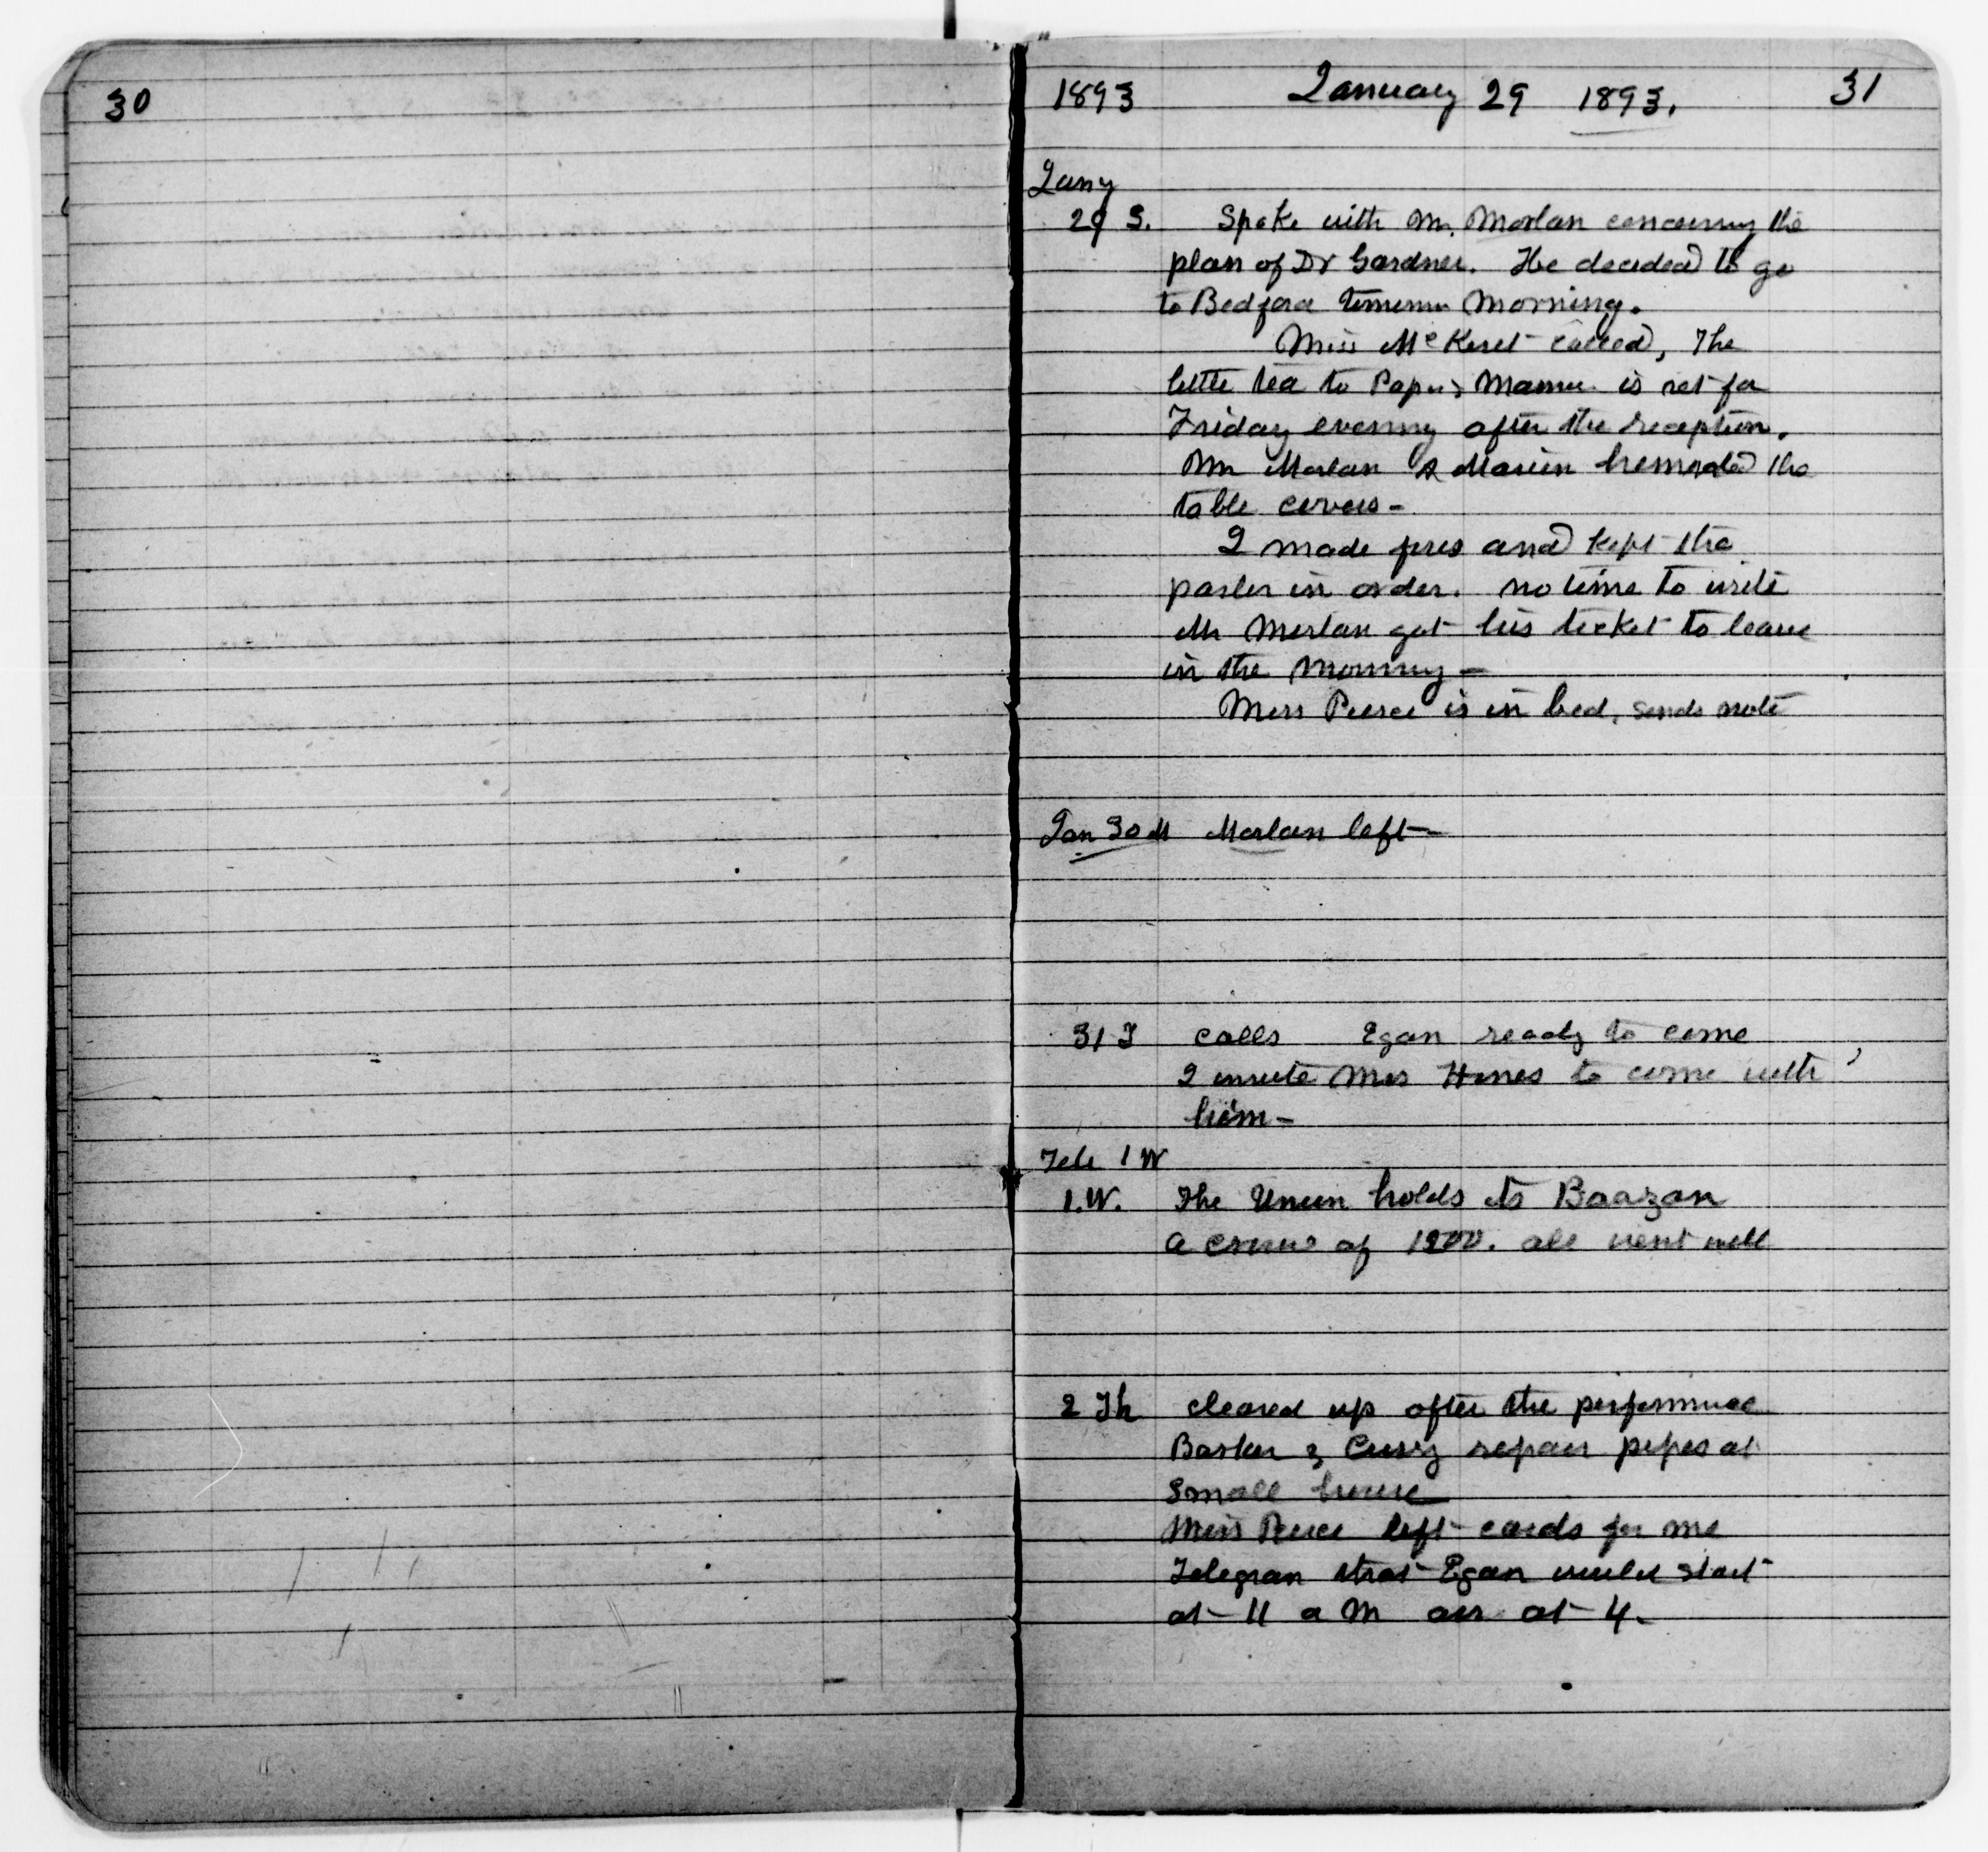 30
1893 January 29 1893. 31
Jany
29 S. Spoke with Mr. Morlan concerning the
plan of Dr Gardner. He decided to go
to Bedford Morning.
Miss called, The
little tea to Papa & Mamma is set for
Friday evening after the reception.
Mrs Morlan & Marion the
table covers-
I made fires and kept the
parlor in order. no time to write
Mr Morlan got his ticket to leave
in the Morning -
Miss Pierce is in bed, sends note
Jan 30 M Morlan left-
31 T calls Egan ready to come
I invite Mrs Hines to come with
him-
Feb 1 W
1.W. The Union holds its Baazar
a crowd of all went well
2 Th cleared up after the performance
Barker & Curry repair pipes at
small house
Miss Pierce left cards for me
Telegram that Egan would start
at 11 a M arr at 4.